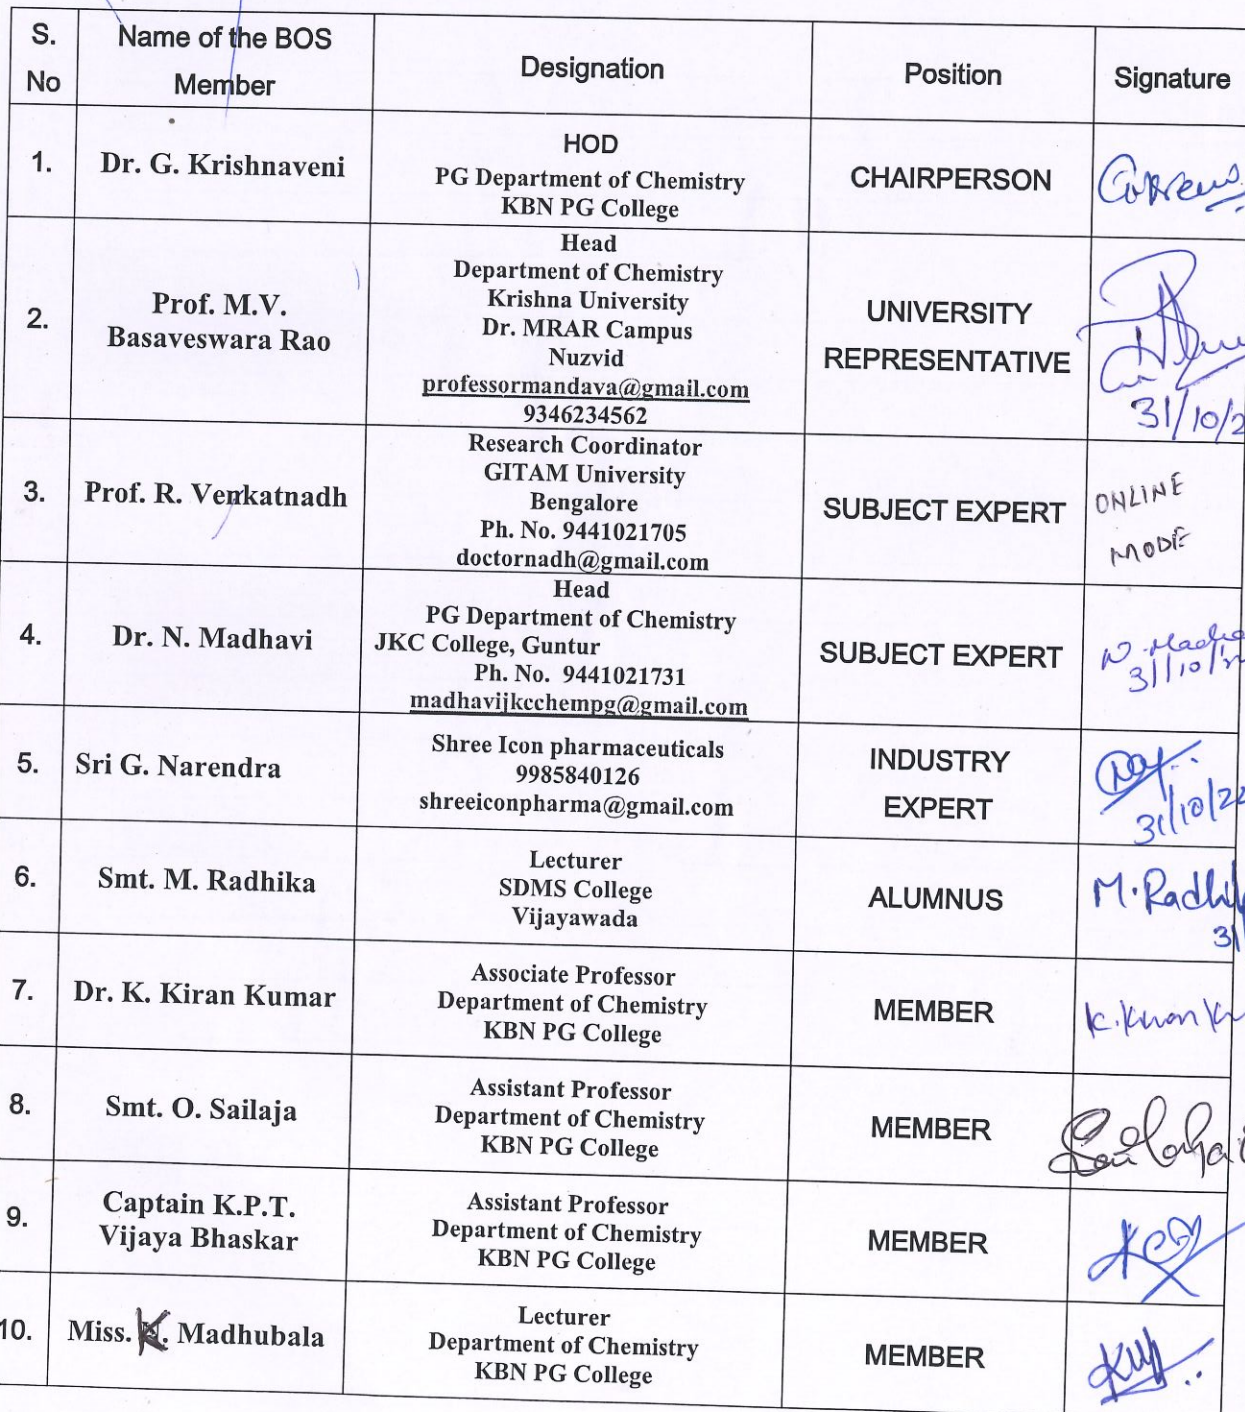 S. No
Name of the BOS Member
Designation
Position
Signature
1.
Dr. G. Krishnaveni
HOD
PG Department of Chemistry
KBN PG College
CHAIRPERSON
2.
Prof. M.V.
Basaveswara Rao
Head
Department of Chemistry
Krishna University
Dr. MRAR Campus
Nuzvid
professormandava@gmail.com
9346234562
UNIVERSITY
REPRESENTATIVE
31/10/2
3.
Prof. R. Venkatnadh
Research Coordinator
GITAM University
Bengalore
Ph. No. 9441021705
doctornadh@gmail.com
SUBJECT EXPERT
ONLINE
MODE
4.
Dr. N. Madhavi
Head
PG Department of Chemistry
JKC College, Guntur
Ph. No. 9441021731
madhavijkcchempg@gmail.com
SUBJECT EXPERT
N. Madha
31/10/
5.
Sri G. Narendra
Shree Icon pharmaceuticals
9985840126
shreeiconpharma@gmail.com
INDUSTRY
EXPERT
31/10/22
6.
Smt. M. Radhika
Lecturer
SDMS College
Vijayawada
ALUMNUS
M. Radhi
31
7.
Dr. K. Kiran Kumar
Associate Professor
Department of Chemistry
KBN PG College
MEMBER
K. Kiran Ku
8.
Smt. O. Sailaja
Assistant Professor
Department of Chemistry
KBN PG College
MEMBER
9.
Captain K.P.T.
Vijaya Bhaskar
Assistant Professor
Department of Chemistry
KBN PG College
MEMBER
10.
Miss. K. Madhubala
Lecturer
Department of Chemistry
KBN PG College
MEMBER